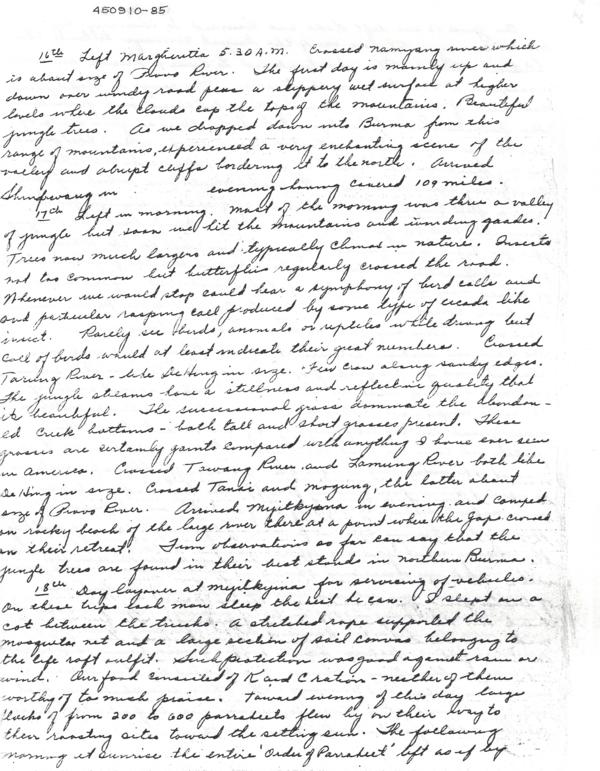 450910-85
16th Left Margherita 5.30 A.M. Crossed Namyang river which
is about size of Provo River. The first day is mainly up and
down over windy road pass a slippery wet surface at higher
levels where the clouds cap the top of the mountains. Beautiful
jungle trees. As we dropped down into Burma from this
range of mountains, experienced a very enchanting scene of the
valley and abrupt cliffs bordering it to the north. Arrived
Shingbwiyang in evening having covered 109 miles.
17th Left in morning. Most of the morning was three a valley
of jungle but soon we hit the mountains and winding grades.
Trees now much larger and typically climax in nature. Insects
not too common but butterflies regularly crossed the road.
Whenever we would stop could hear a symphony of bird calls and
and particular rasping call produced by some type of cicada like
insect. Rarely see birds, animals or reptiles while driving but
call of birds would at least indicate their great numbers. Crossed
Tarung River - like DeHing in size. Few crow along sandy edges.
The jungle streams have a stillness and reflective quality that
is beautiful. The successional grass dominate the abandon-
ed creek bottoms - both tall and short grasses present. These
grasses are certainly giants compared with anything I have ever seen
in America. Crossed Tawang River and Lamung River both like
DeHing in size. Crossed Tanai and Mogung, the latter about
size of Provo River. Arrived Myitkyina in evening and camped
on rocky beach of the large river there at a point where the Japs crossed
in their retreat. From observations so far can say that the
jungle trees are found in their best stands in northern Burma.
18th Day layover at Myitkyina for servicing of vehicles.
On these trips each man sleep the best he can. I slept on a
cot between the trucks. A stretched rope supported the
mosquito net and a large section of sail canvas belonging to
the life raft outfit. Such protection was good against rain or
wind. Our food consisted of K and C ration - neither of them
worthy of to much praise. Toward evening of this day large
flocks of from 200 to 600 parrakeets flew by on their way to
their roosting sites toward the setting sun. The following
morning at sunrise the entire 'Order of Parrakeet' left as if by